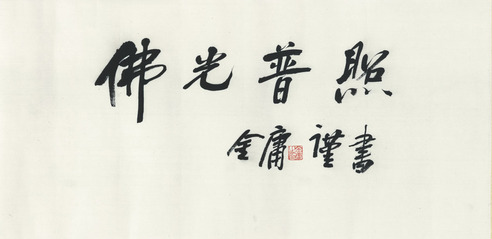 佛光普照
金庸谨書